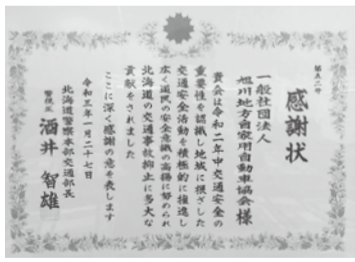 感謝状
一般社団法人
旭川地方自家用自動車協会様
貴会は令和二年中交通安全の
重要性を認識し地域に根ざした
交通安全活動を積極的に推進し
広く道民の安全意識の高揚に努められ
北海道の交通事故抑止に多大な
貢献をされました
ここに深く感謝の意を表します
令和三年一月二十七日
北海道警察本部交通部長
警視正 酒井智雄